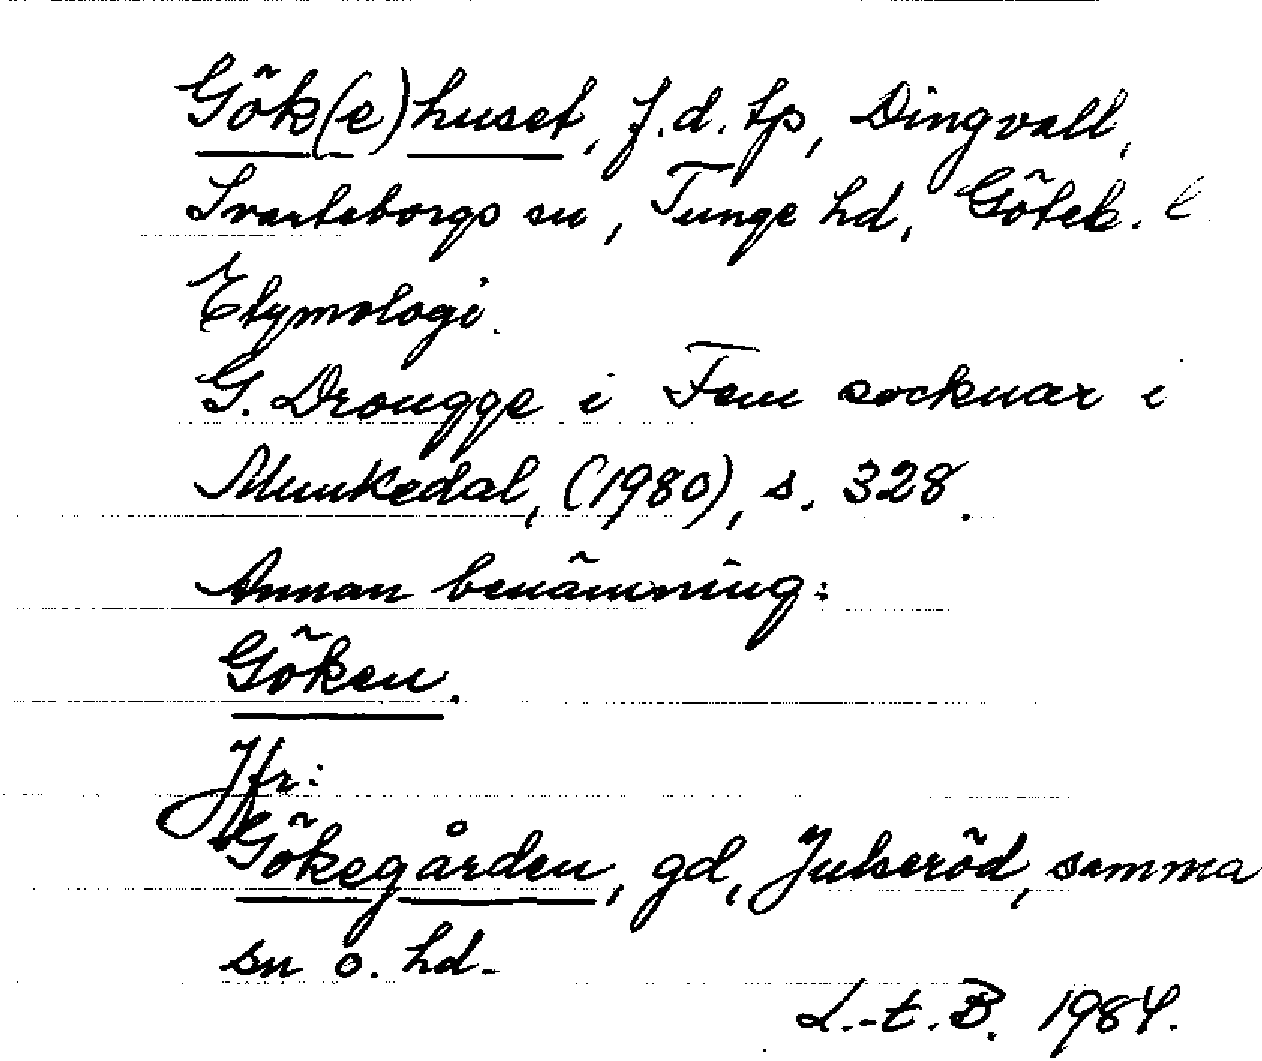 Gök(e)huset, f.d. tp, Dingvall,
Svarteborgs sn, Tunge hd, Göteb. l
Etymologi.
G. Drougge i Fem socknar i
Munkedal, (1980), s. 328.
Annan benämning:
Göken.
Jfr:
Gökegården, gd, Julseröd, samma
sn o. hd.
L.-t. B. 1984.